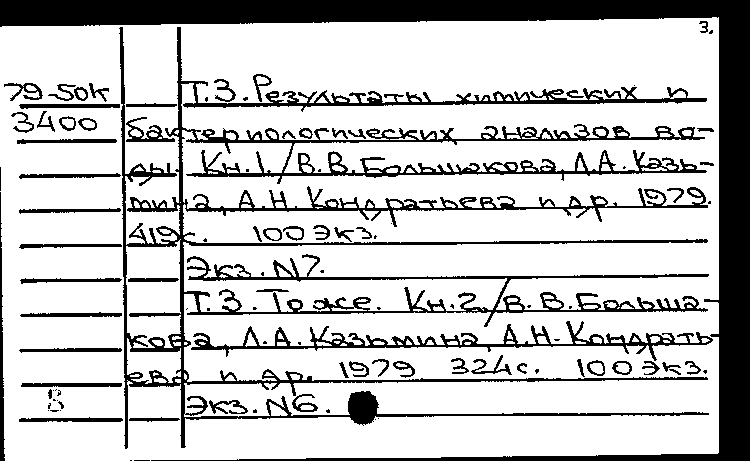 3.
79-50к Т.3. Результаты химических и
3400 бактериологических анализов во-
ды. Кн.1./В.В.Большакова, Л.А.Казь-
мина, А.Н.Кондратьева и др. 1979.
419с. 100 экз.
Экз.N7.
Т.3. То же. Кн.2./В.В.Больша-
кова, Л.А.Казьмина, А.Н.Кондрать-
ева и др. 1979 324с. 100 экз.
Экз.N6.